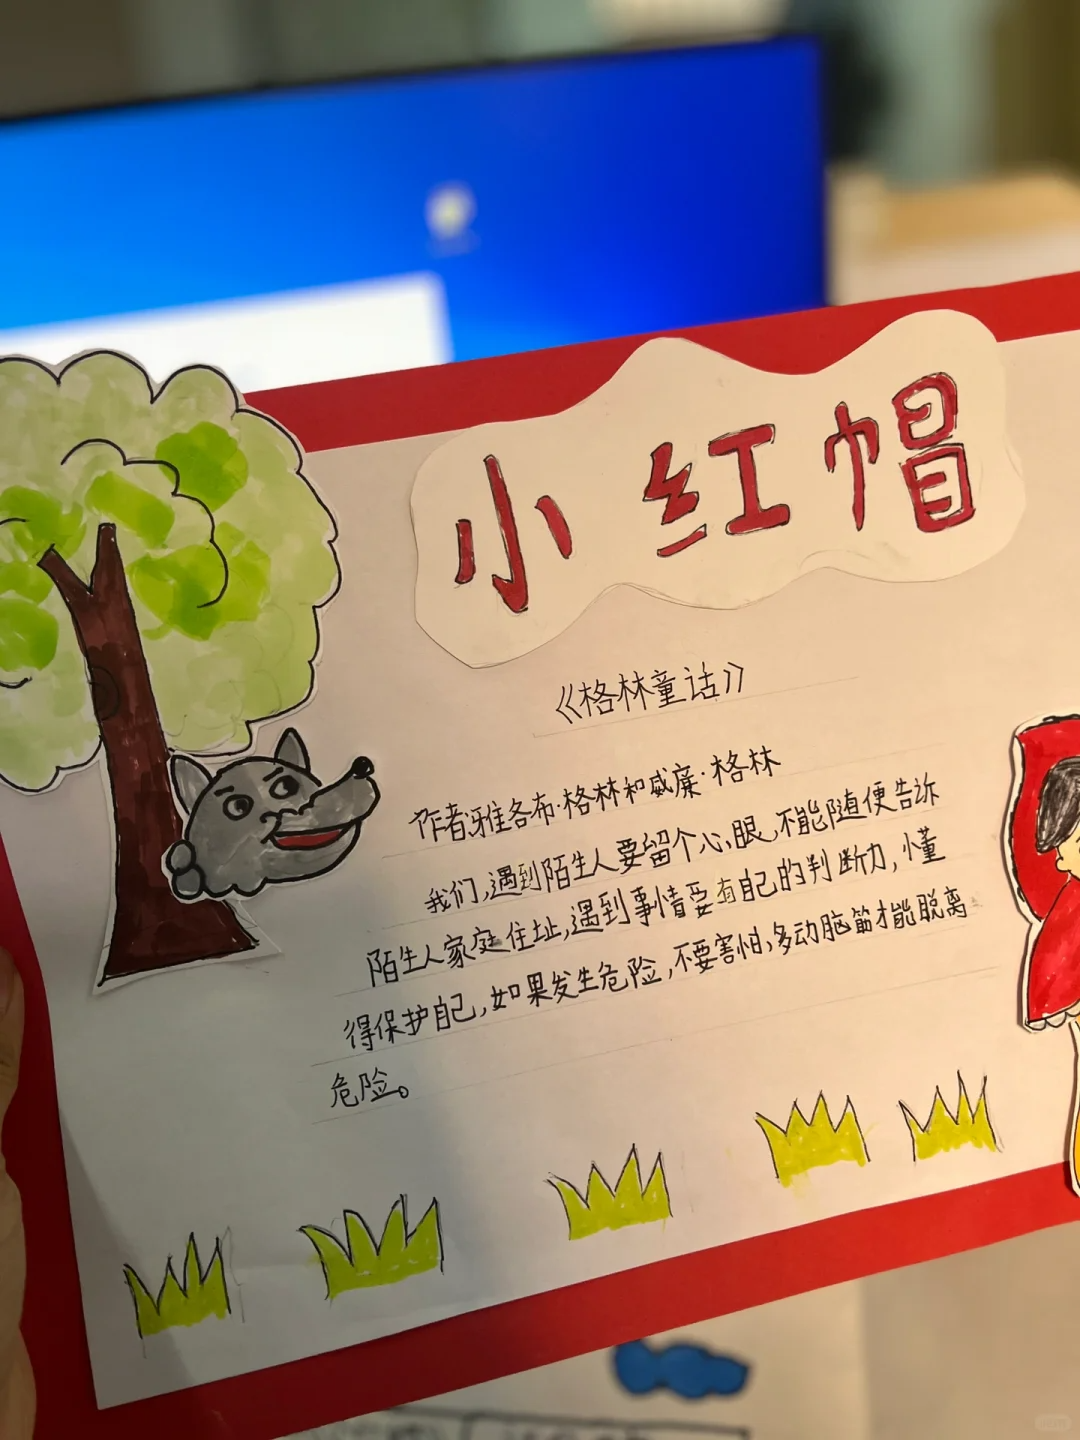 小红帽
《格林童话》
作者:雅各布·格林和威廉·格林
我们,遇到陌生人要留个心眼,不能随便告诉
陌生人家庭住址,遇到事情要有自己的判断力,懂
得保护自己,如果发生危险,不要害怕,多动脑筋才能脱离
危险。